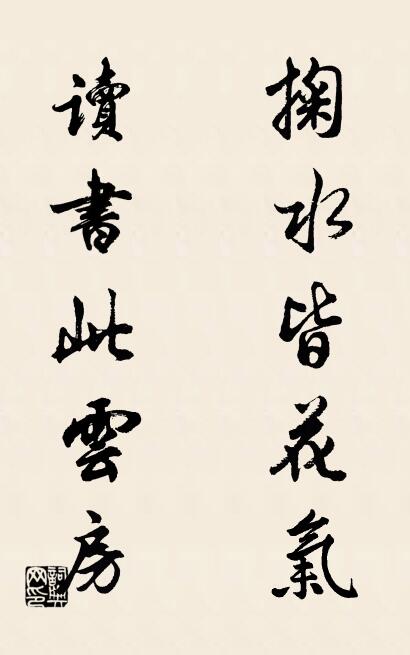 掬水皆花氣
讀書此雲房